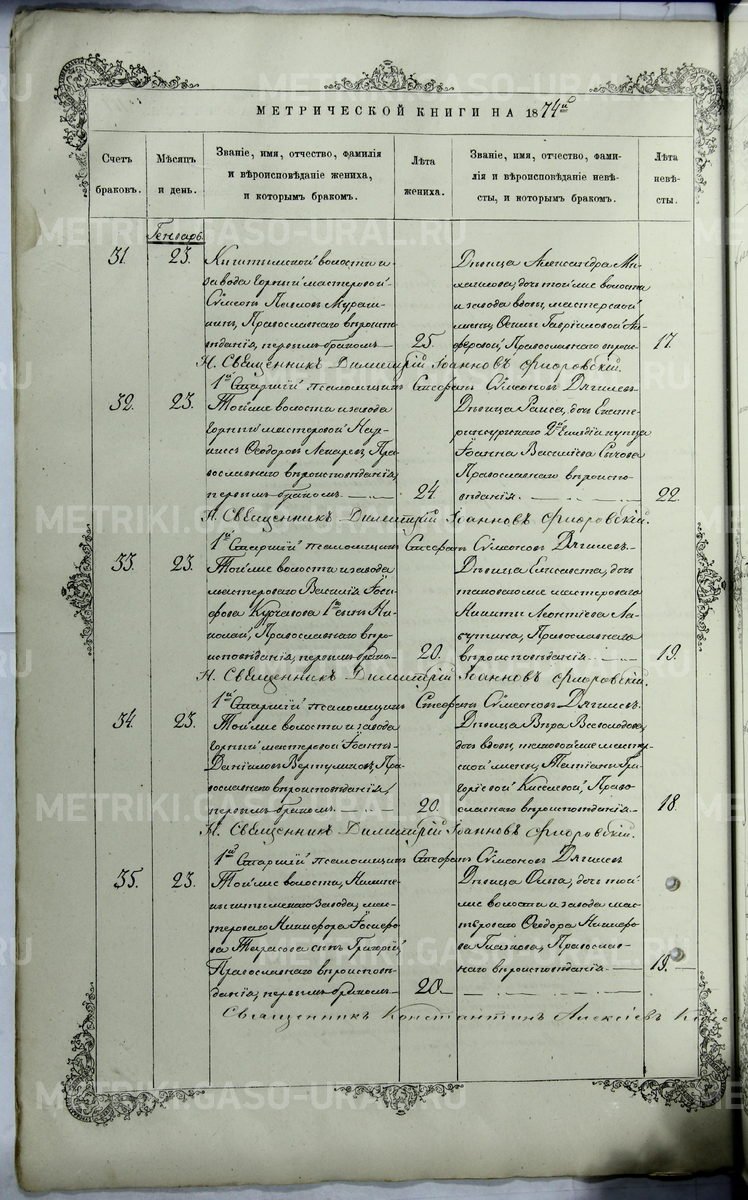 МЕТРИЧЕСКОЙ КНИГИ НА 1874й
Счетъ браковъ.
Мѣсяцъ и день.
Званіе, имя, отчество, фамилія
и вѣроисповѣданіе жениха,
и которымъ бракомъ.
Лѣта жениха.
Званіе, имя, отчество, фами-
лія и вѣроисповѣданіе невѣ-
сты, и которымъ бракомъ.
Лѣта невѣ-
сты.
Генварь.
31.
23.
Кыштымской волости и
завода горный мастеровой
Сѵмеонъ Павловъ
Православнаго вѣроиспо-
вѣданія, первымъ бракомъ
25.
Дѣвица Александра Ми-
хаилова, дочь той же волости
и завода вдовы мастерской
жены, Гавріиловой Ал-
феровой, Православнаго вѣроис-
17.
Н. Священникъ Димитрій Іоанновъ Флоровскій.
1й Старшій псаломщикъ Стефанъ Сѵмеоновъ Дягилевъ
32.
23.
Той же волости и завода
горный мастеровой
Ѳеодоровъ Пра-
вославнаго вѣроисповѣданія,
первымъ бракомъ
24.
Дѣвица Раиса, дочь Екате-
ринбургскаго 2й гильдіи купца
Іоанна Василіева Сычова
Православнаго вѣроиспо-
вѣданія.
22.
Н. Священникъ Димитрій Іоанновъ Флоровскій.
1й Старшій псаломщикъ Стефанъ Сѵмеоновъ Дягилевъ.
33.
23.
Той же волости и завода
мастероваго Василія Іоси-
фова 1й сынъ Ни-
колай, Православнаго вѣро-
исповѣданія, первымъ брако-
20.
Дѣвица Елисавета, дочь
таковаго же мастероваго
Никиты Леонтіева Ла-
кутина, Православнаго
вѣроисповѣданія.
19.
Н. Священникъ Димитрій Іоанновъ Флоровскій.
1й Старшій псаломщикъ Стефанъ Сѵмеоновъ Дягилевъ.
34.
23.
Той же волости и завода
горный мастеровой Іоаннъ
Даніиловъ Пра-
вославнаго вѣроисповѣданія,
первымъ бракомъ.
20.
Дѣвица Вѣра Всеволодова,
дочь вдовы, таковой же мастер-
ской жены, Татіаны Гри-
горіевой Киселевой, Право-
славнаго вѣроисповѣданія
18
Н. Священникъ Димитрій Іоанновъ Флоровскій.
1й Старшій псаломщикъ Стефанъ Сѵмеоновъ Дягилевъ
35.
23.
Той же волости, Нижне-
кыштымскаго Завода, мас-
тероваго Никифора Іосифо-
ва Тарасова сынъ Григорій,
Православнаго вѣроисповѣ-
данія, первымъ бракомъ
20.
Дѣвица Ольга, дочь той
же волости и завода мас-
тероваго Ѳеодора Никифо-
рова Православ-
наго вѣроисповѣданія
19.
Священникъ Константинъ Алексіевъ
METRIKI.GASO-URAL.RU